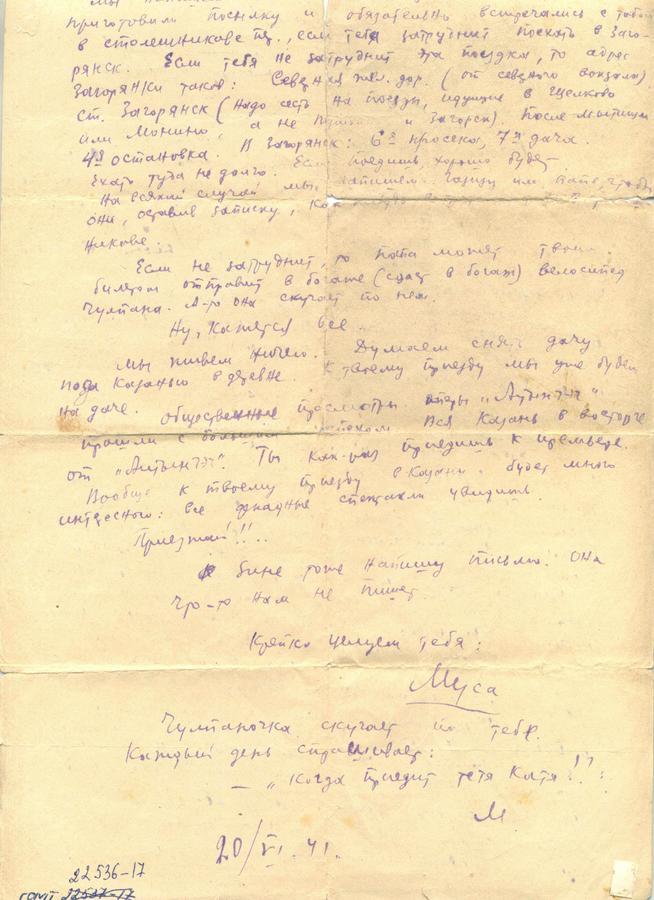 приготовили посылку и обязательно встречались с тобой
в столешникове п., если тебя затруднит поехать в Заго-
рянск. Если тебя не затруднит эта поездка, то адрес
Загорянки таков: Северная жел. дор. (от северного вокзала)
ст. Загорянск (надо сесть на поезд, идущие в Щелково
или Монино, а не и Загорск). После Мытищи
4я остановка. В Загорянск: 6я просека, 7я дача.
Ехать туда не долго. Если поедишь, хорошо будет
На всякий случай мы напишем им чтобы
они, оставив записку,
никове.
Если не затруднит, то папа может твоим
билетом отправит в багаже (сдаст в багаж) велосипед
Чулпана. А-то она скучает по нем.
Ну, кажется все.
Мы живем ничего. Думаем снять дачу
под Казанью в деревне. К твоему приезду мы уже будем
на даче. Общественные просмотры оперы „Алтынчәч"
прошли с большим успехом. Вся Казань в восторге
от „Алтынчәч". Ты как-раз приедишь к премьере.
Вообще к твоему приезду в Казани будет много
интересного: все спектакли увидишь.
Приезжай!!..
Зине тоже напишу письмо. Она
что-то нам не пишет.
Крепко целуем тебя:
Муса
Чулпаночка скучает по тебе.
Каждый день спрашивает:
— „Когда приедит тетя Катя!?:
М
20/VI.41.
22536-17
ГОМТ 22537-17